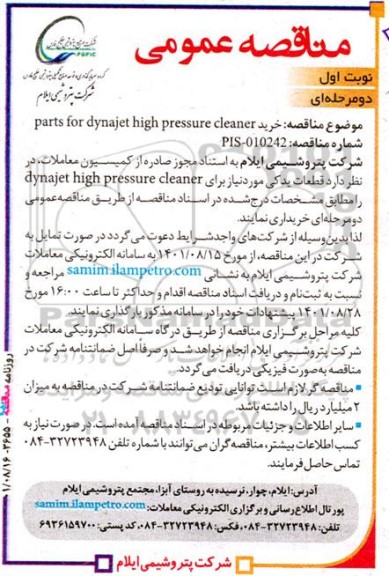 مناقصه عمومی
نوبت اول
دومرحله‌ای
PGPIC
شرکت پتروشیمی ایلام
موضوع مناقصه: خرید parts for dynajet high pressure cleaner
شماره مناقصه: PIS-010242
شرکت پتروشیمی ایلام به استناد مجوز صادره از کمیسیون معاملات، در
نظر دارد قطعات یدکی موردنیاز برای dynajet high pressure cleaner
را مطابق مشخصات درج‌شده در اسناد مناقصه از طریق مناقصه عمومی
دومرحله‌ای خریداری نمایند.
لذا بدین‌وسیله از شرکت‌های واجدشرایط دعوت می‌گردد در صورت تمایل به
شرکت در این مناقصه، از مورخ ۱۴۰۱/۰۸/۱۵ به سامانه الکترونیکی معاملات
شرکت پتروشیمی ایلام به نشانی samim.ilampetro.com مراجعه و
نسبت به ثبت‌نام و دریافت اسناد مناقصه اقدام و حداکثر تا ساعت ۱۶:۰۰ مورخ
۱۴۰۱/۰۸/۲۸ پیشنهادات خود را در سامانه مذکور بارگذاری نمایند.
کلیه مراحل برگزاری مناقصه از طریق درگاه سامانه الکترونیکی معاملات
شرکت پتروشیمی ایلام انجام خواهد شد و صرفاً اصل ضمانتنامه شرکت در
مناقصه به‌صورت فیزیکی دریافت می‌گردد.
▪ مناقصه گر لازم است توانایی تودیع ضمانتنامه شرکت در مناقصه به میزان
۲ میلیارد ریال را داشته باشد.
▪ سایر اطلاعات و جزئیات مربوطه در اسناد مناقصه آمده است. در صورت نیاز به
کسب اطلاعات بیشتر، مناقصه‌گران می‌توانند با شماره تلفن ۳۲۷۲۳۹۴۸-۰۸۴
تماس حاصل فرمایند.
آدرس: ایلام، چوار، نرسیده به روستای آبزا، مجتمع پتروشیمی ایلام
پورتال اطلاع رسانی و برگزاری الکترونیکی معاملات: samim.ilampetro.com
تلفن: ۳۲۷۲۳۹۴۸-۰۸۴، فکس: ۳۲۷۲۳۹۴۸-۰۸۴، کد پستی: ۶۹۳۶۱۵۹۷۰۰
شرکت پتروشیمی ایلام